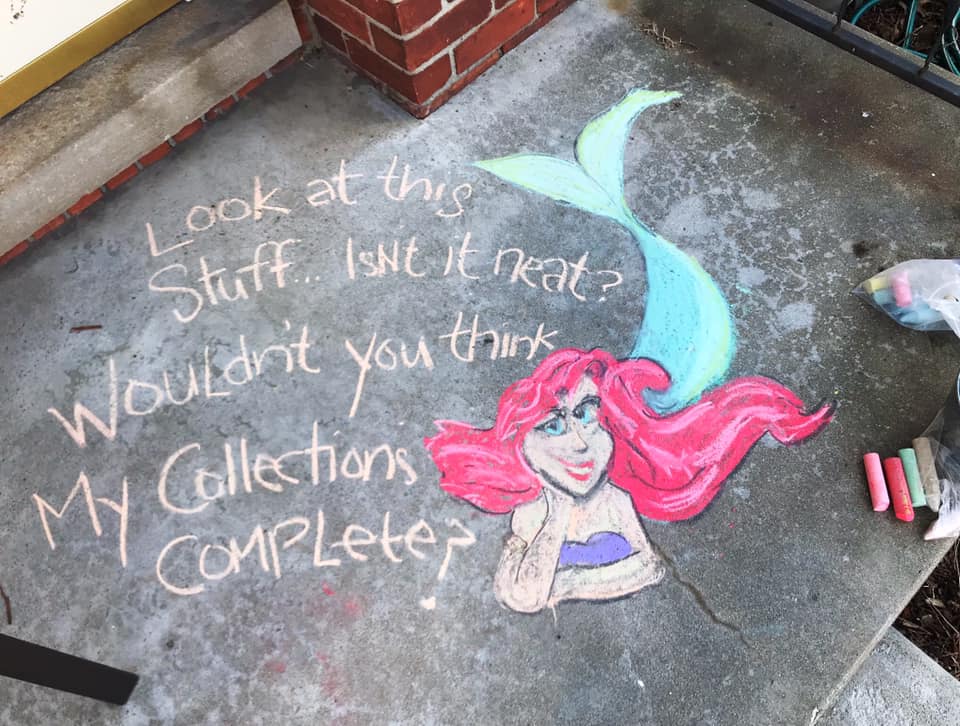 Look at this
Stuff... Isn't it neat?
Wouldn't you think
My Collections
Complete?